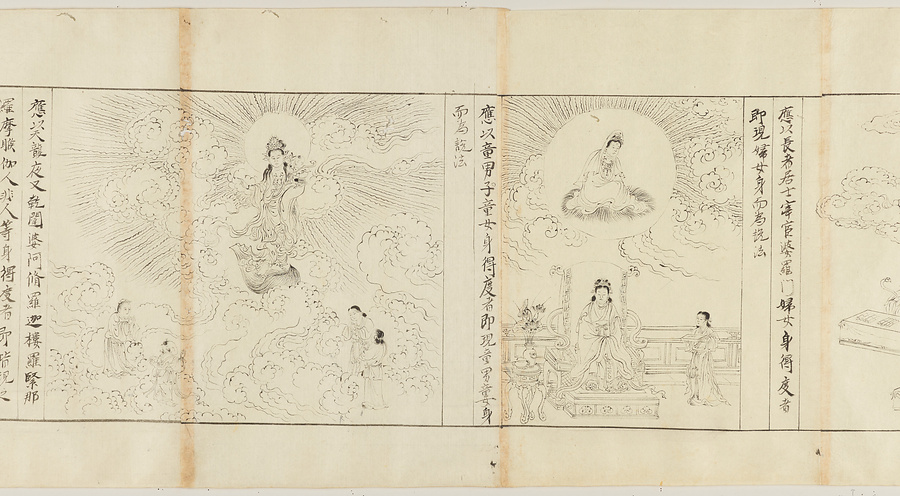 應以長者居士宰官婆羅門婦女身得度者
即現婦女身而為說法
應以童男子童女身得度者即現童男童女身
而為說法
應以天龍夜叉乾闥婆阿脩羅迦樓羅緊那
羅摩睺伽人非人等身得度者即皆現之